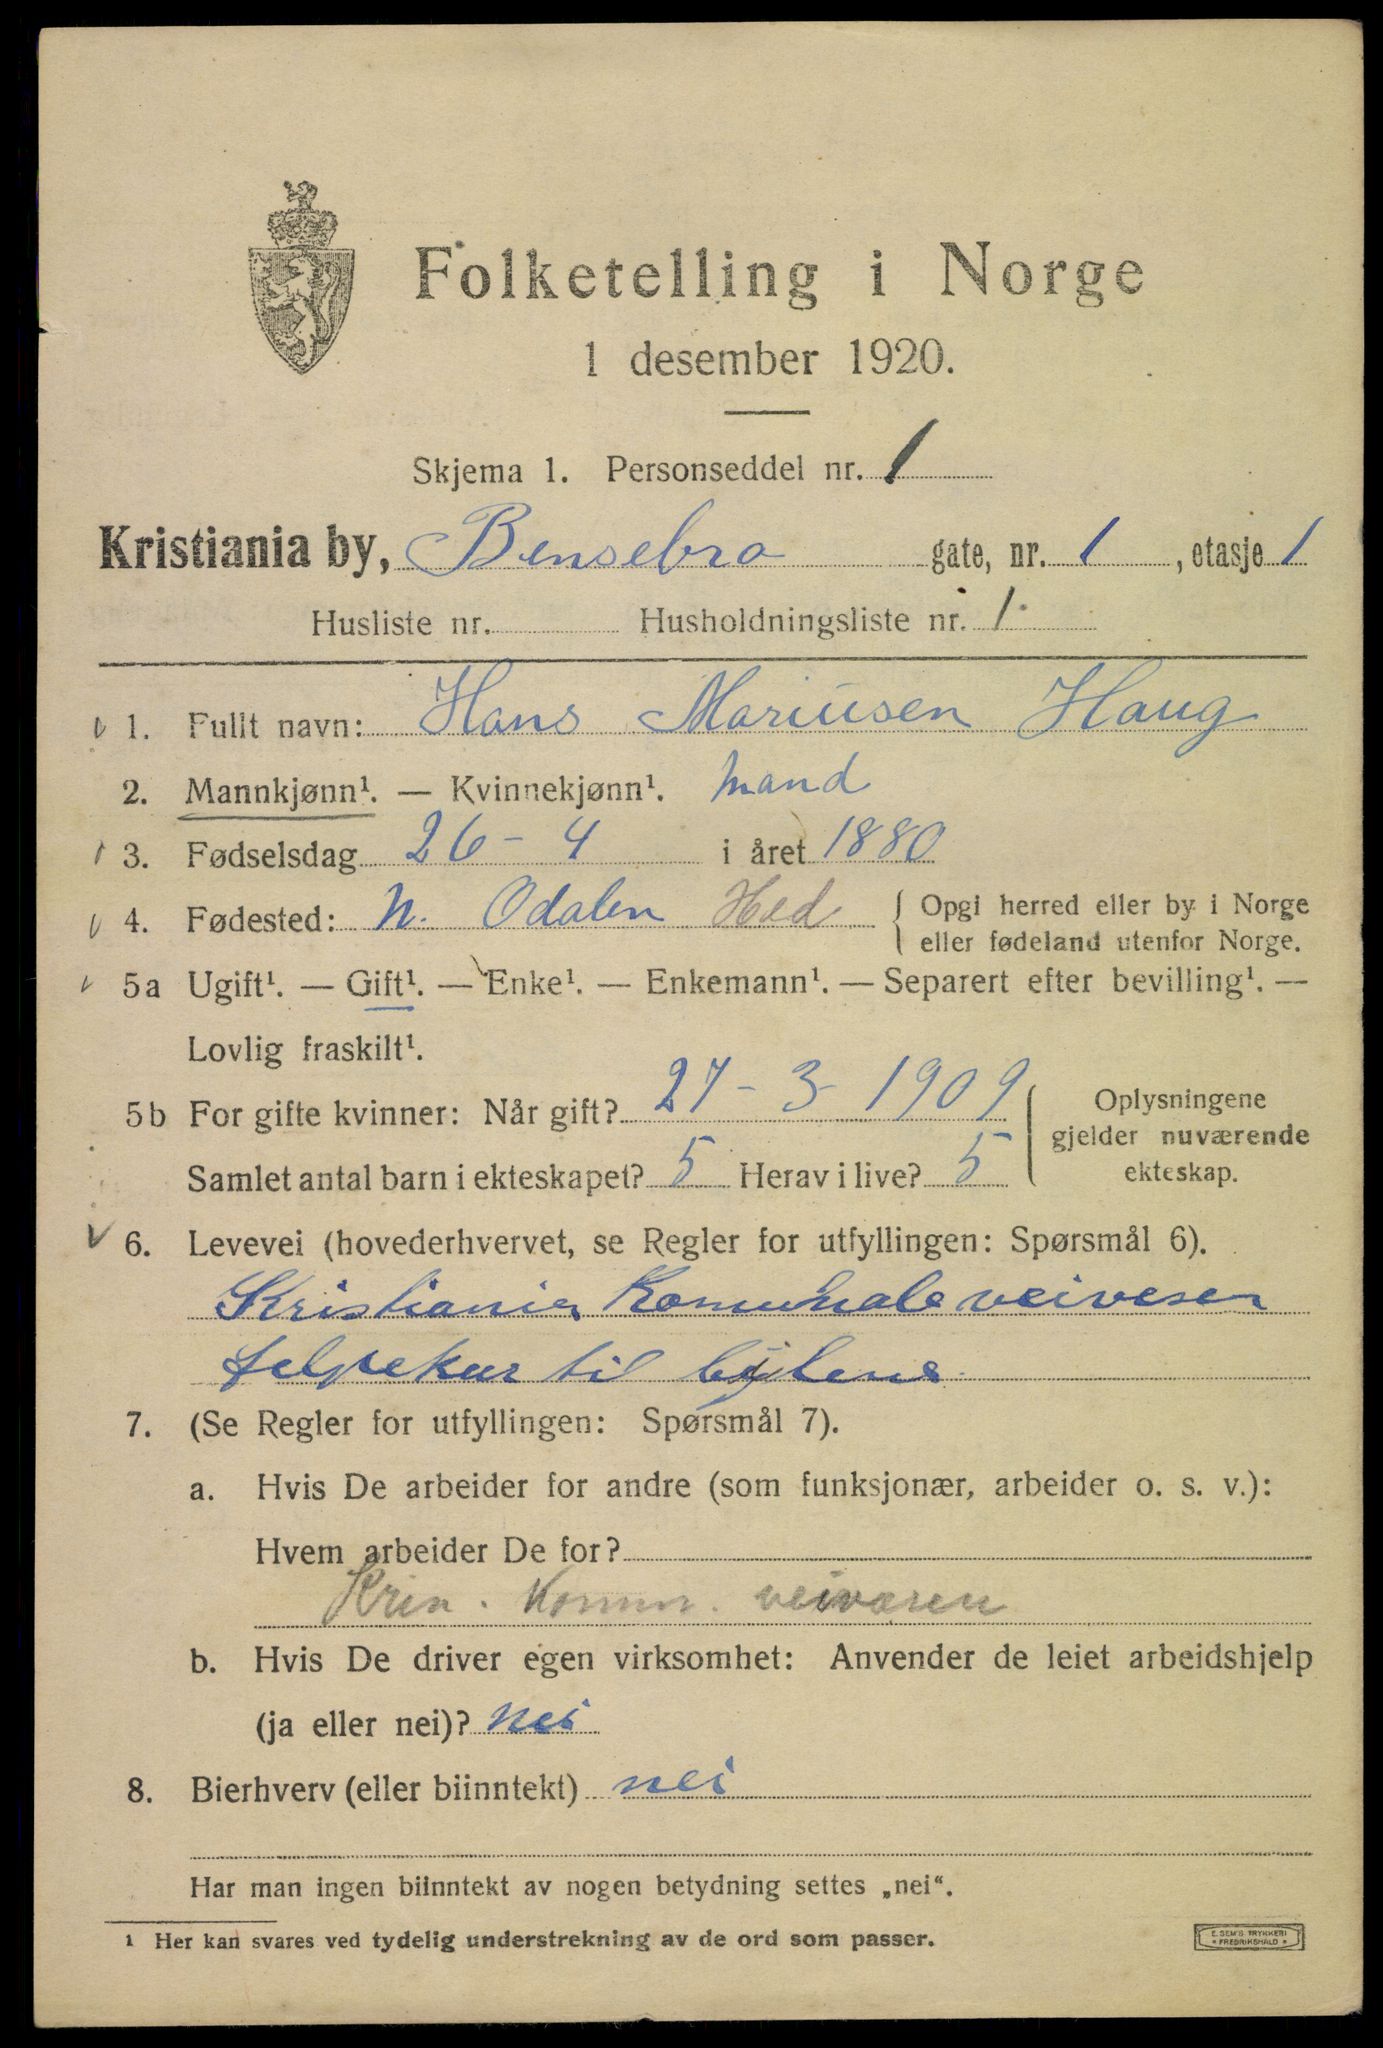 Folketelling i Norge
1 desember 1920.
Skjema 1. Personseddel nr. 1
Kristiania by, Bensebra gate, nr. 1, etasje 1
Husliste nr. Husholdningsliste nr. 1
1. Fullt navn: Hans Mariusen Haug
2. Mannkjønn¹. — Kvinnekjønn¹. Mand
3. Fødselsdag 26 - 4 i året 1880
4. Fødested: N. Odalen Hed { Opgi herred eller by i Norge
eller fødeland utenfor Norge.
5a Ugift¹. — Gift¹. — Enke¹. — Enkemann¹. — Separert efter bevilling¹. —
Lovlig fraskilt¹.
5b For gifte kvinner: Når gift? 27 - 3 - 1909
Samlet antal barn i ekteskapet? 5 Herav i live? 5
Oplysningene
gjelder nuværende
ekteskap.
6. Levevei (hovederhvervet, se Regler for utfyllingen: Spørsmål 6).
Kristiania Komunale veivesen
til
7. (Se Regler for utfyllingen: Spørsmål 7).
a. Hvis De arbeider for andre (som funksjonær, arbeider o. s. v.):
Hvem arbeider De for?
Kria. Komm. veivæsen
b. Hvis De driver egen virksomhet: Anvender de leiet arbeidshjelp
(ja eller nei)? nei
8. Bierhverv (eller biinntekt) nei
Har man ingen biinntekt av nogen betydning settes „nei“.
¹ Her kan svares ved tydelig understrekning av de ord som passer.
E. SEM'S TRYKKERI
* FREDRIKSHALD *